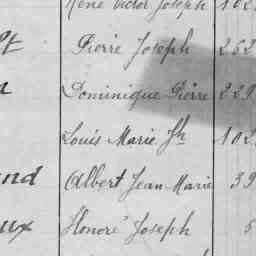 René Victor Joseph 102
Pierre Joseph 262
Dominique Pierre 229
Louis Marie Jh 102
and Albert Jean Marie 39
ux Honoré Joseph 5